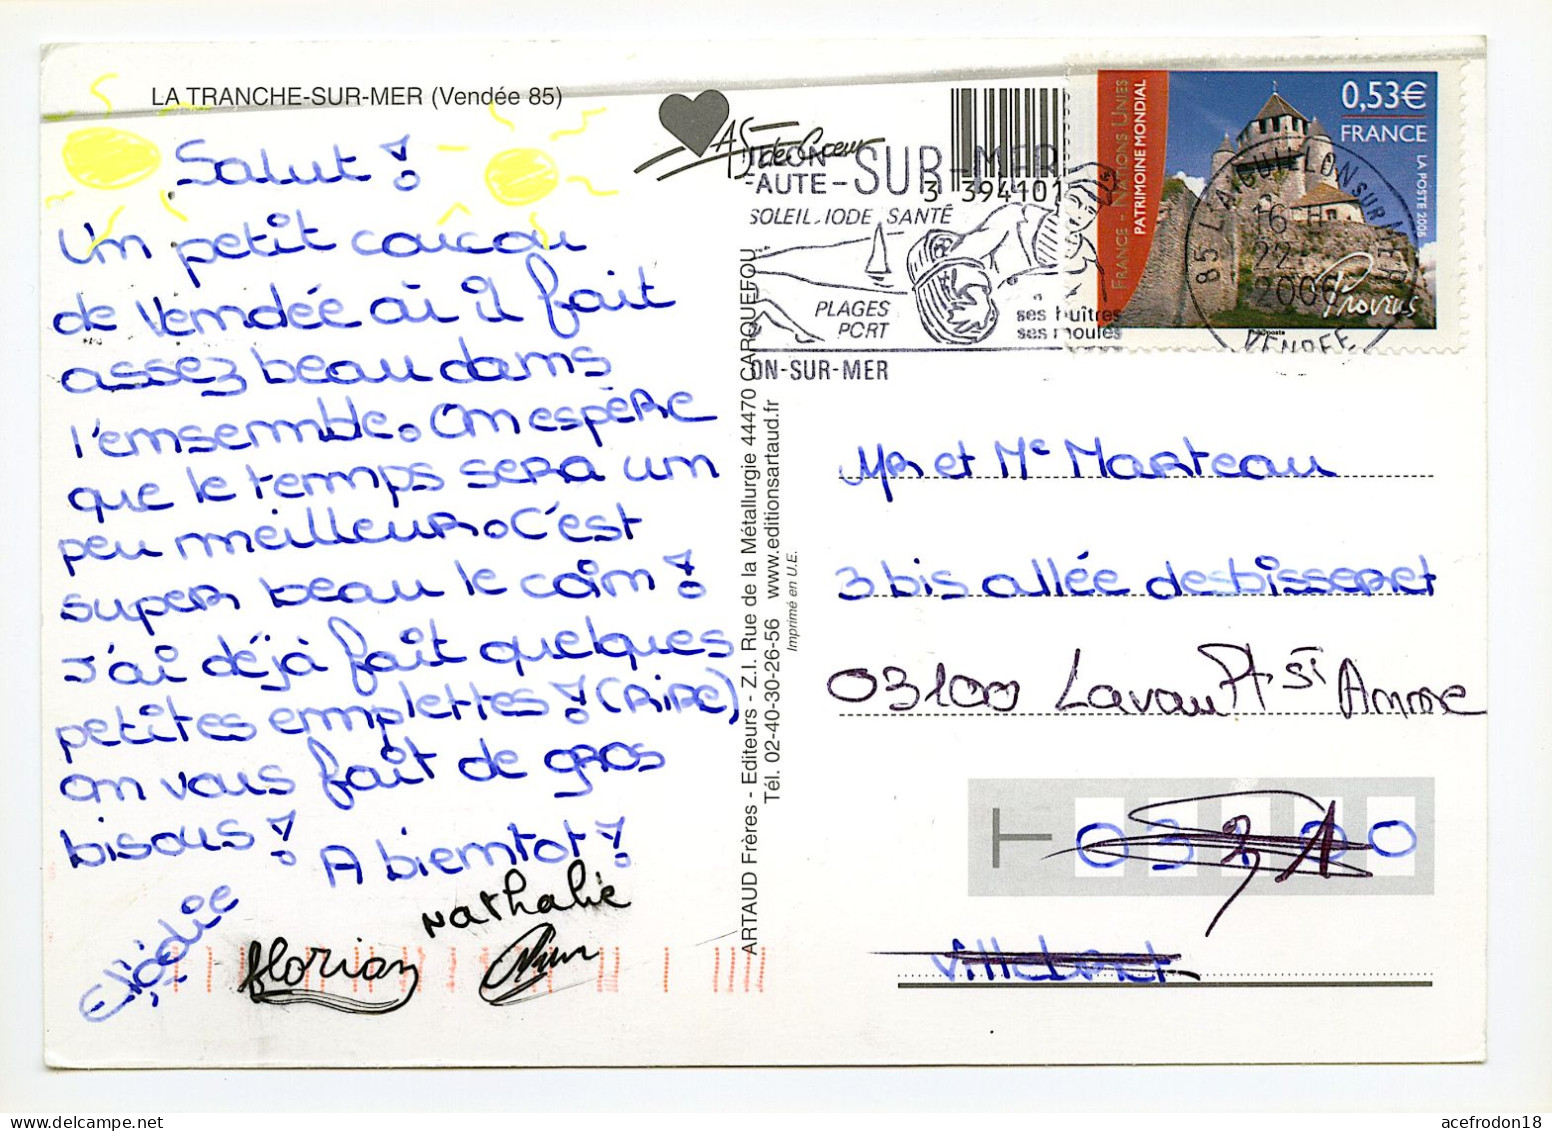 LA TRANCHE-SUR-MER (Vendée 85)
Salut !
Un petit coucou
de Vendée où il fait
assez beau dans
l'ensemble. On espère
que le temps sera un
peu meilleur. C'est
super beau le coin !
J'ai déjà fait quelques
petites emplettes ! (RIRE)
on vous fait de gros
bisous !
A bientot !
Elodie
florian
Nathalie
As de Cœur
3 394101
-SUR-MER
AUTE-
SOLEIL-IODE SANTÉ
PLAGES
PORT
ses huîtres
ses moules
ON-SUR-MER
FRANCE - NATIONS UNIES
PATRIMOINE MONDIAL
0,53€
FRANCE
LA POSTE 2006
Provins
85 L'AIGUILLON SUR MER
16 H
22
2006
VENDEE
ARTAUD Frères - Editeurs - Z.I. Rue de la Métallurgie 44470 CARQUEFOU
Tél. 02-40-30-26-56 www.editionsartaud.fr
Imprimé en U.E.
MR et Me Marteau
3 bis allée des bisseret
03100 Lavault St Anne
acefrodon18